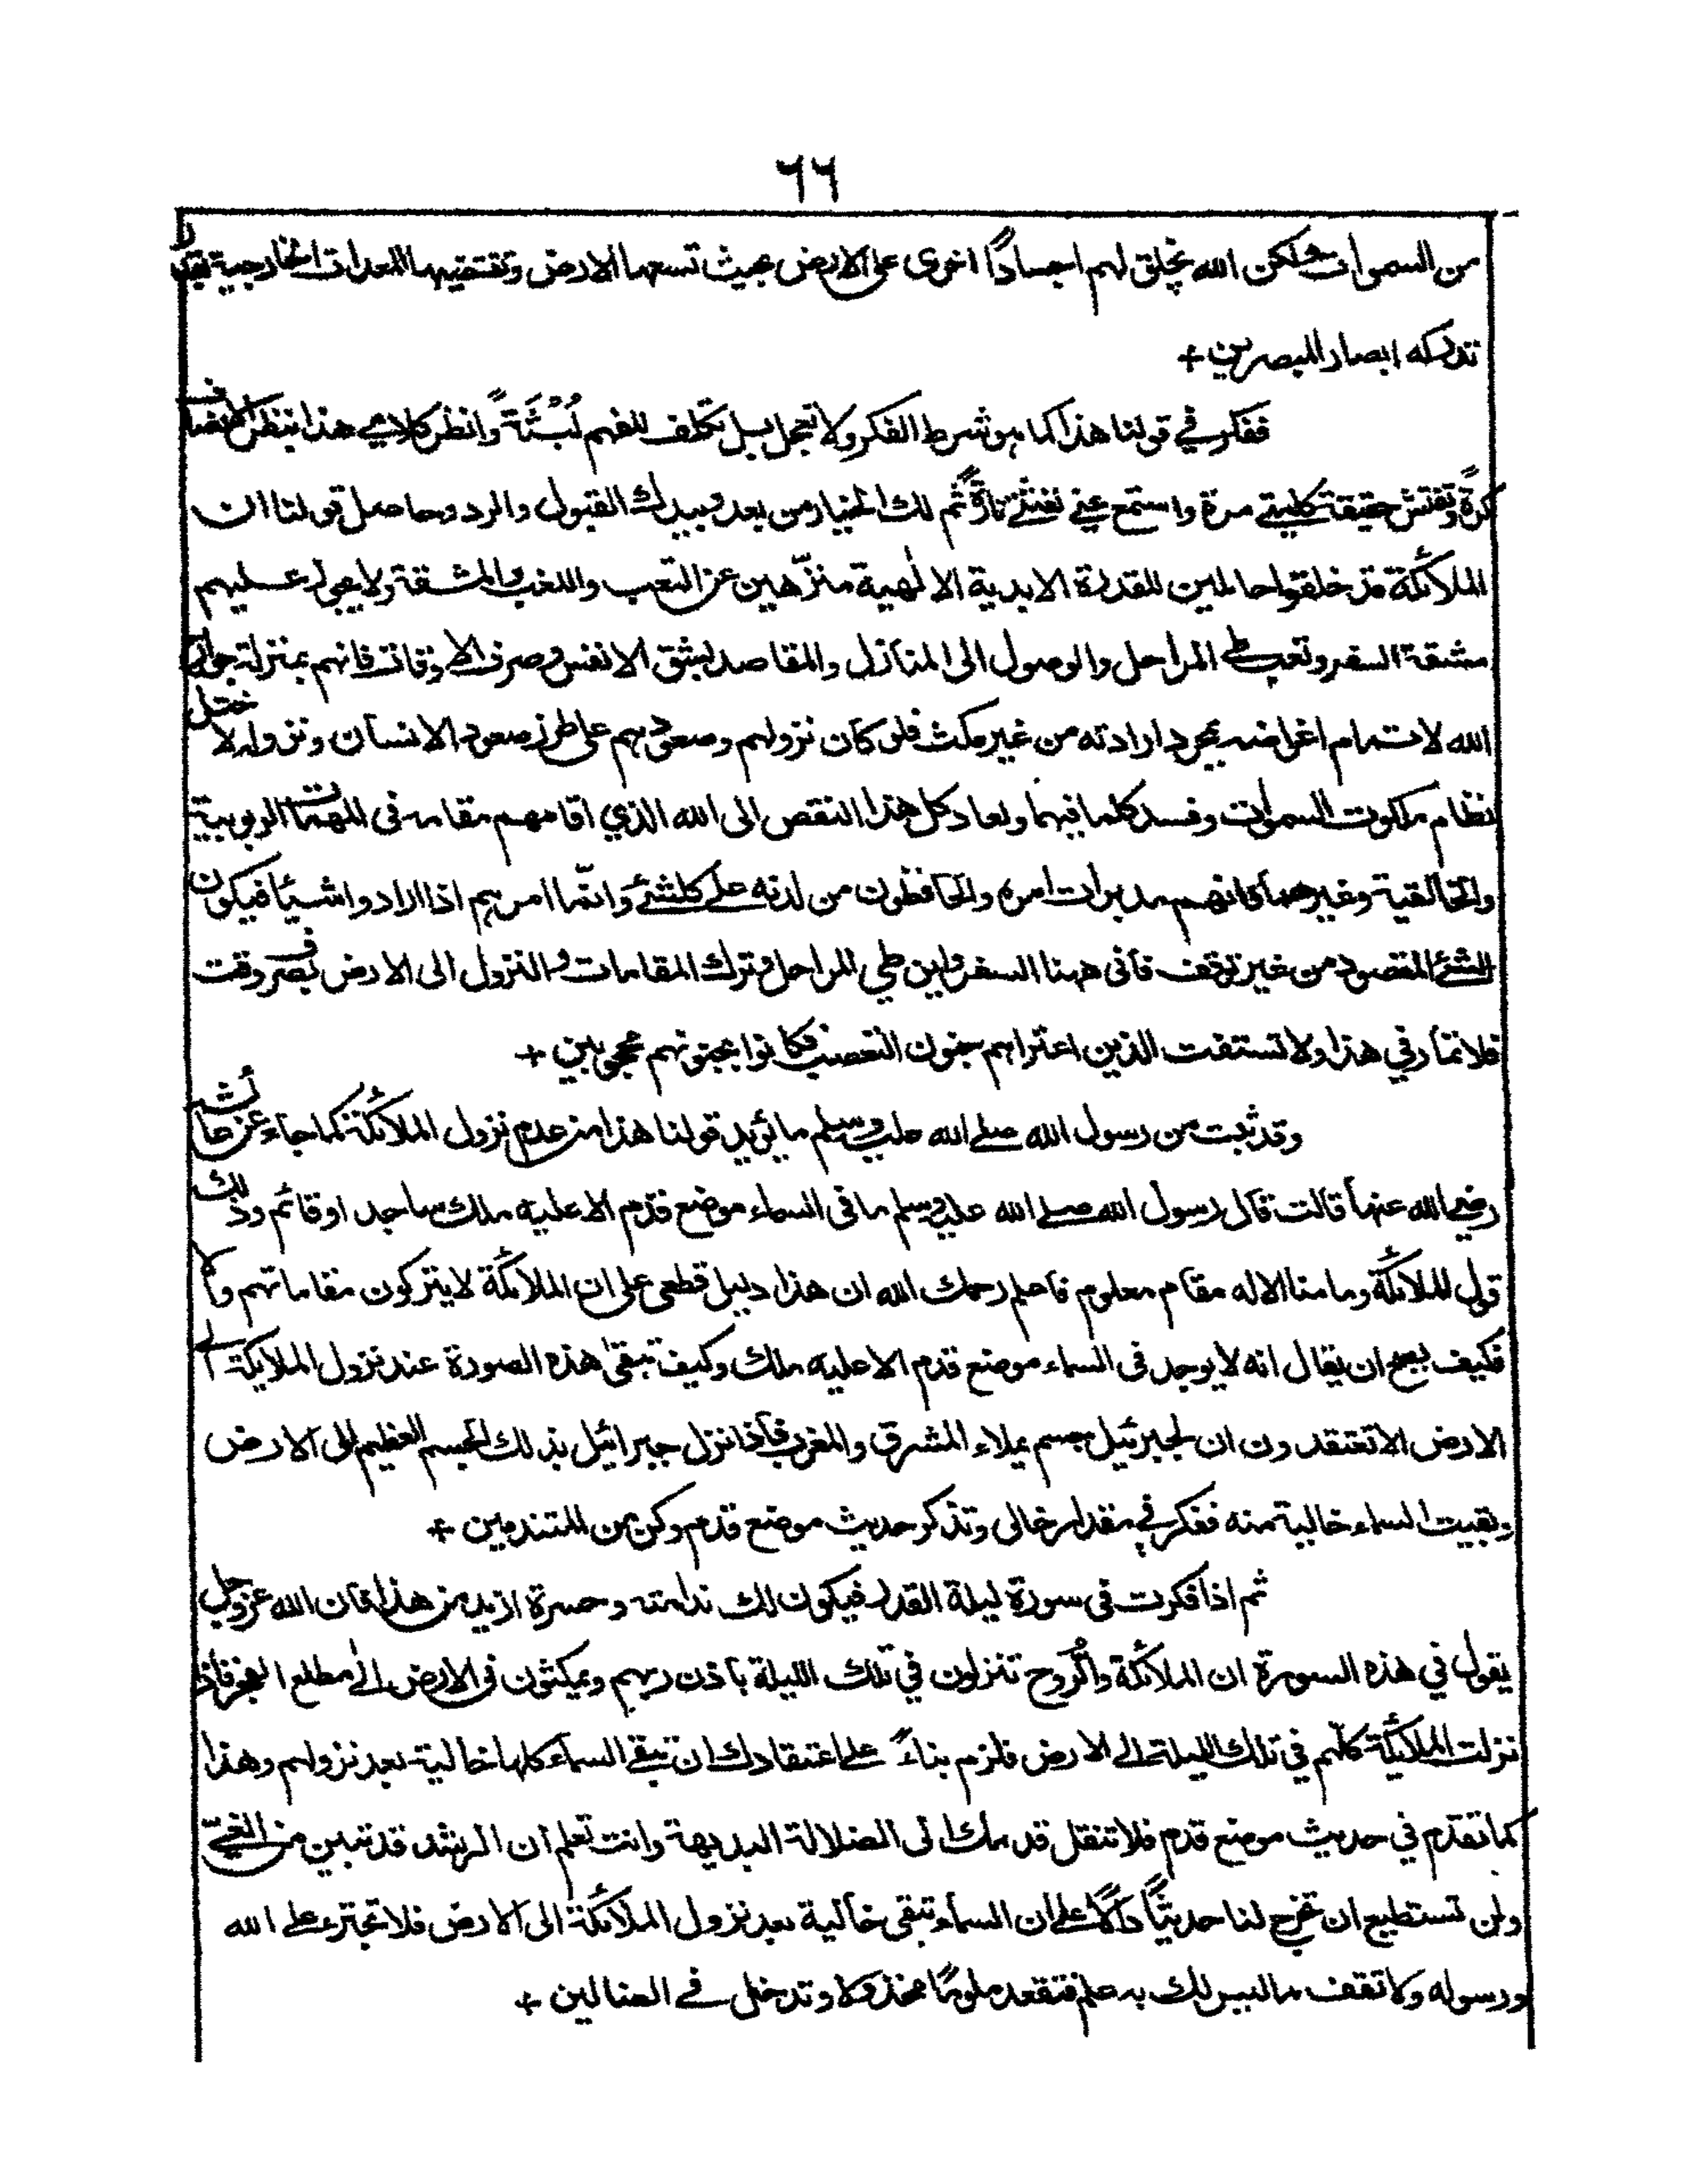 ٦٦
من السموات ولكن الله يخلق لهم اجسادًا اخرى على الارض بحيث تسعها الارض وتقتضيها المعدات الخارجية بقدر
تدركه ابصار المبصرين +
ففكر في قولنا هذا كما هو شرط الفكر ولا تعجل بل تكلف للفهم لُبْثَةً وانظر كلامي هذا بنظر الانصاف
كرةً وتفتش حقيقة كلمتي مرة واستمع عني نفثتي تارةً ثم لك الخيار من بعد وبيدك القبول والرد وحاصل قولنا ان
الملائكة قد خلقوا حاملين للقدرة الابدية الالهية منزّهين عن التعب واللغب والمشقة ولا يجوز عليهم
مشقة السفر وتعب طي المراحل والوصول الى المنازل والمقاصد بشق الانفس وصرف الاوقات فانهم بمنزلة جوارح
الله لاتمام اغراضه بمجرد ارادته من غير مكث فلو كان نزولهم وصعودهم على طرز صعود الانسان ونزوله لاختل
نظام ملكوت السموات وفسد كلما فيهما ولعاد كل هذا النقص الى الله الذي اقامهم مقامه في المهمات الربوبية
والخالقية وغيرهما فانهم مدبرات امره والحافظون من لدنه على كلشئ وانّما امرهم اذا ارادوا شيئا فيكون
الشئ المقصود من غير توقف فأنى ههنا السفر واين طي المراحل وترك المقامات والنزول الى الارض بصرف وقت
فلا تمار في هذا ولا تستفت الذين اعتراهم جنون التعصب فكانوا بجنونهم محجوبين +
وقد ثبت من رسول الله صلے الله عليه وسلم ما يؤيد قولنا هذا من عدم نزول الملائكة كما جاء عن عائشة
رضي الله عنها قالت قال رسول الله صلے الله عليه وسلم ما في السماء موضع قدم الا عليه ملك ساجد او قائم وذلك
قول الملائكة وما منا الا له مقام معلوم فاعلم رحمك الله ان هذا دليل قطعي على ان الملائكة لا يتركون مقاماتهم والا
فكيف يصح ان يقال انه لا يوجد في السماء موضع قدم الا عليه ملك وكيف تبقى هذه الصورة عند نزول الملايكة الى
الارض الا تعتقدون ان لجبرئيل جسم يملاء المشرق والمغرب فاذا نزل جبرائيل بذلك الجسم العظيم الى الارض
وبقيت السماء خالية منه ففكر في مقدار خالي وتذكر حديث موضع قدم وكن من المتندمين +
ثم اذا فكرت في سورة ليلة القدر فيكون لك ندامته وحسرة ازيد من هذا فان الله عزوجل
يقول في هذه السورة ان الملائكة والروح تنزلون في تلك الليلة باذن ربهم ويمكثون في الارض الى مطلع الفجر فاذا
نزلت الملائكة كلّهم في تلك الليلة الى الارض فلزم بناءً على اعتقادك ان تبقى السماء كلها خالية بعد نزولهم وهذا
كما تقدم في حديث موضع قدم فلا تنقل قدمك الى الضلالة البديهة وانت تعلم ان الرشد قد تبين من الغيّ
ولن تستطيع ان تخرج لنا حديثًا دالًا على ان السماء تبقى خالية بعد نزول الملائكة الى الارض فلا تجترء على الله
ورسوله ولا تقف ما ليس لك به علم فتقعد ملومًا مخذولا وتدخل في الضالين +